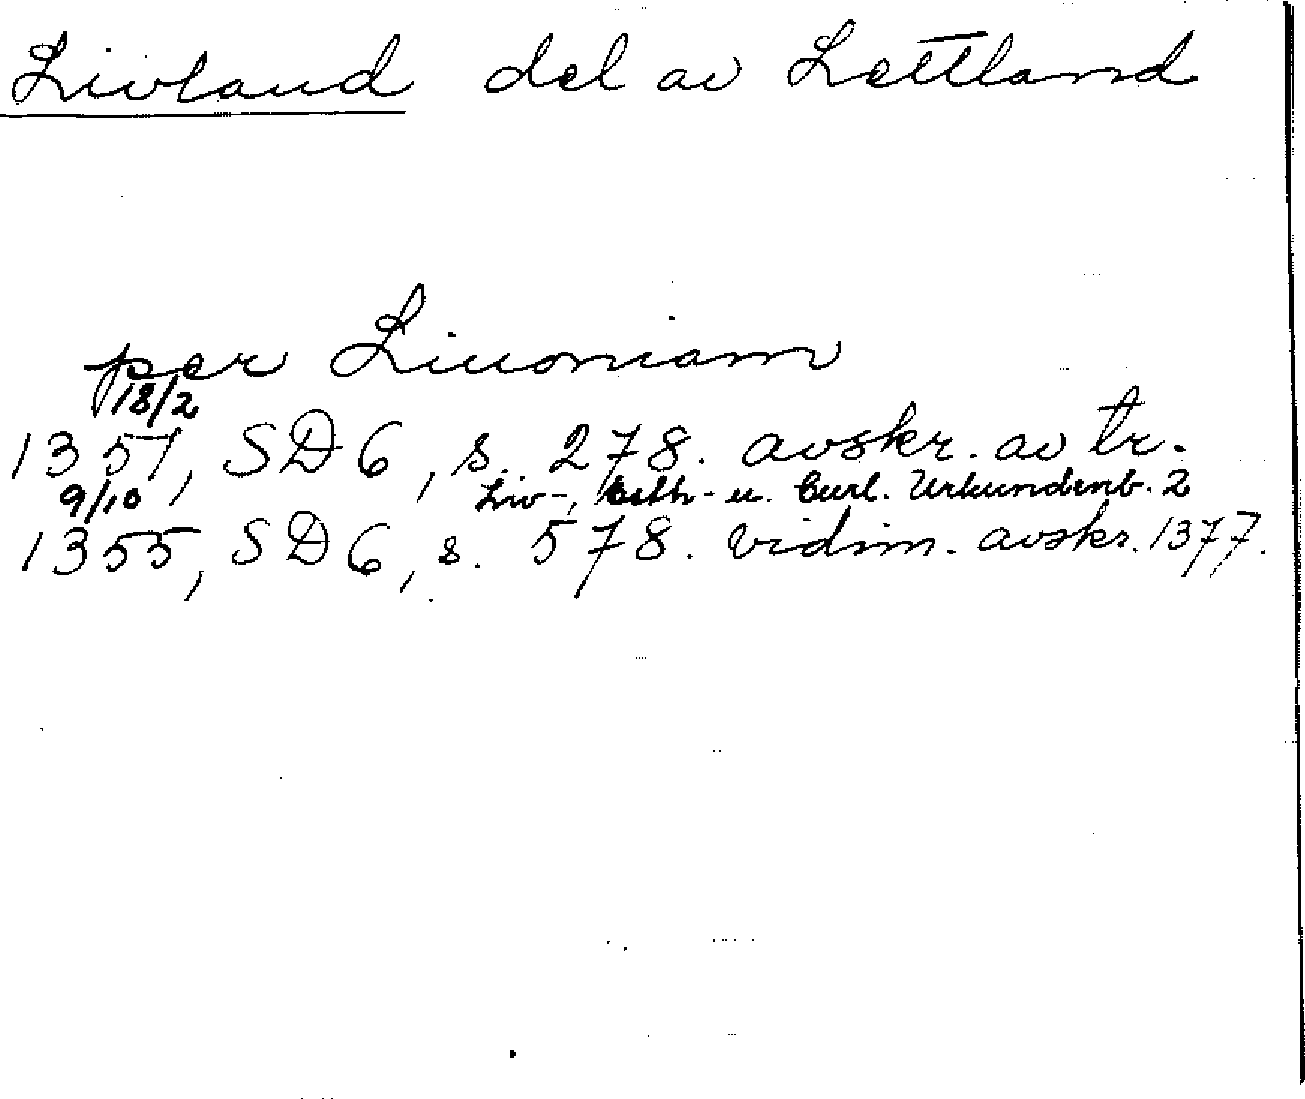 Livland del av Lettland
per Liuoniam
18/2
1351, SD 6, s. 278. avskr. av tr.
9/10 Liv-, Esth- u. Curl. Urkundenb. 2
1355, SD 6, s. 578. vidim. avskr. 1377.